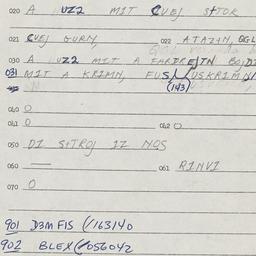 020 A UZ2 MIT CUEJ StTOK
021 CUEJ GURN, 022 ATAZ+N, OGL
030 A UZ2 MIT A FARDREJTN BOJDI
031 MIT A KRIMN, FUS/USKRIM
(143)
040 O
041 O 042 O
050 DI S+TROJ IZ NOS
060 — 061 RINVI
070 O
901 D3M FIS (/163140
902 BLEX (/056042